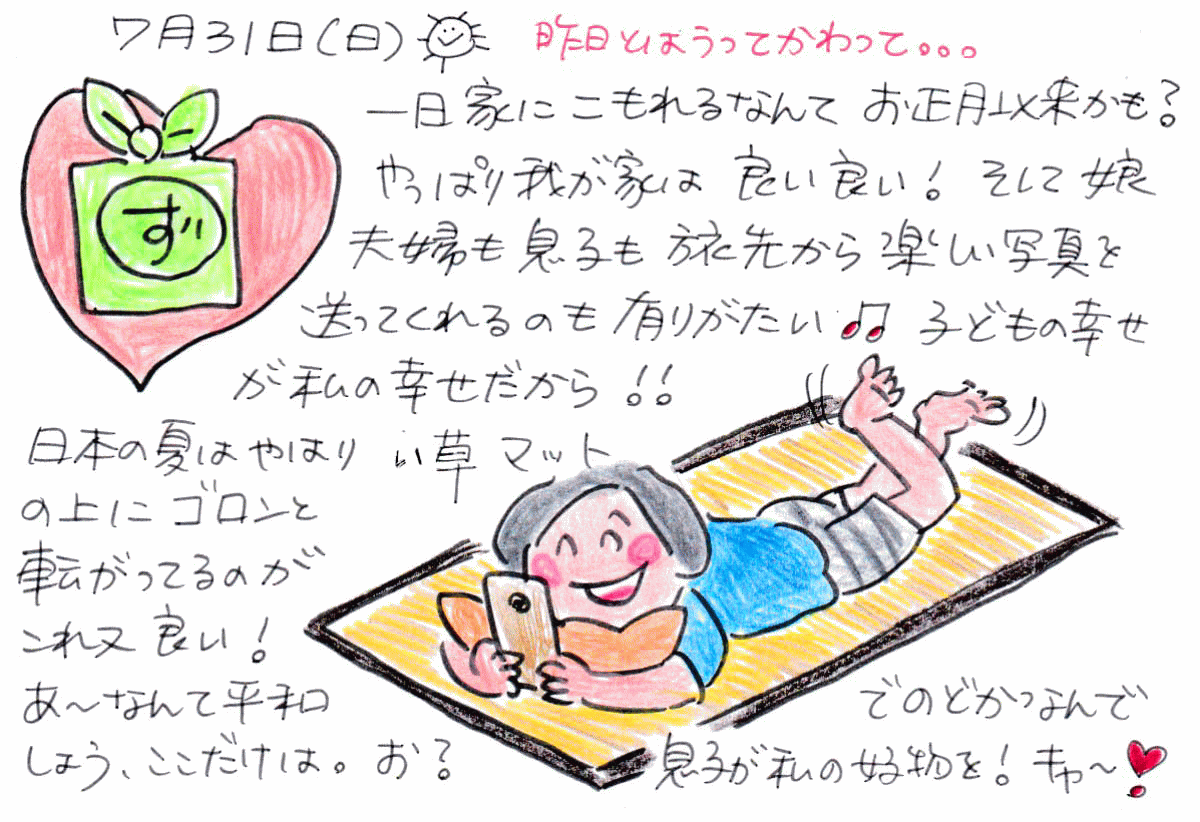 7月31日(日) 昨日とはうってかわって。。。
一日家にこもれるなんて お正月以来かも?
やっぱり我が家は 良い良い! そして 娘
夫婦も 息子も 旅先から 楽しい写真を
送ってくれるのも 有りがたい♫ 子どもの幸せ
が私の幸せだから!!
ず
日本の夏はやはり い草マット
の上に ゴロンと
転がってるのが
これ又 良い!
あ〜なんて平和
でのどかなんで
しょう、ここだけは。お?
息子が私の好物を! キャ〜